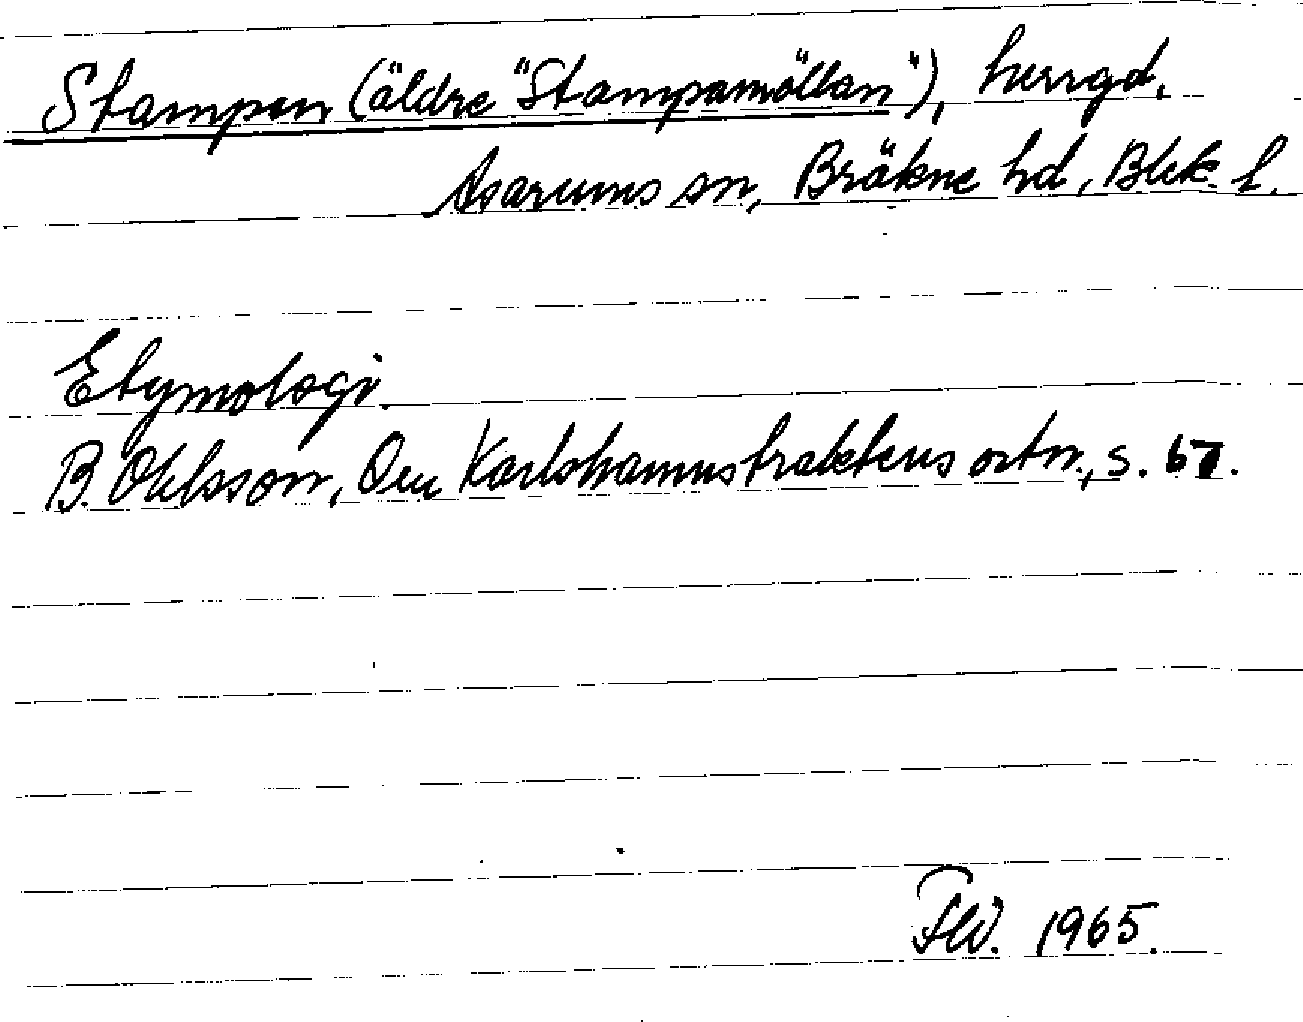 Stampen (äldre "Stampamöllan"), herrgd,
Asarums sn, Bräkne hd, Blek. l.
Etymologi.
B. Ohlsson, Om Karlshamnstraktens ortn., s. 67.
1965.